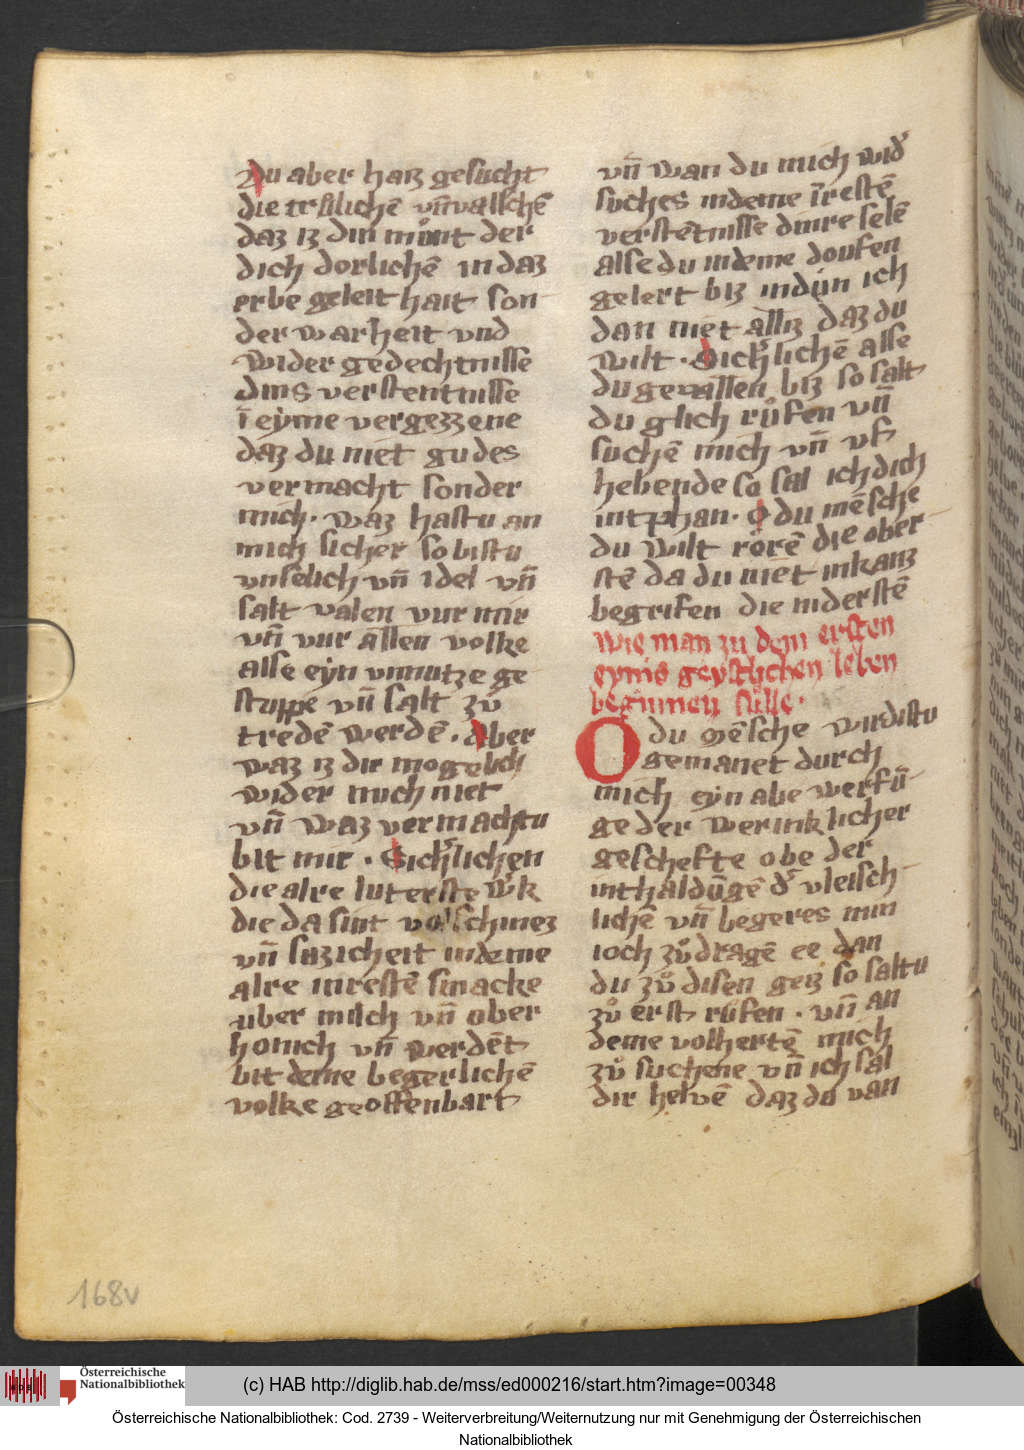 Du aber haiz gesucht
die trůlichē vn̄ valschē
daz iz din můnt der
dich dorlichē in daz
erbe geleit hait son
der warheit vnd
wider gedechtnisse
dins verstentnisse
ī eyme vergezzene
daz du niet gudes
vermacht sonder
mich. waz hastu an
mich sicher so bistu
vnselich vn̄ idel vn̄
salt valen vur mir
vn̄ vur allen volke
alse eyn vnnutze ge
stuppe vn̄ salt zů
tredē werdē. Aber
waz iz dir mogelich
wider mich niet
vn̄ waz vermachtu
bit mir. Sich'lichen
die alre luterste w'k
die da sint volschinez
vn̄ suzicheit indeme
alre inrestē smacke
uber milch vn̄ ober
honich vn̄ werdēt
bit deme begerlichē
volke geoffenbart
vn̄ wan du mich wid'
suches indeme īrestē
verstētnisse dinre selē
alse du indeme doufen
gelert biz indůn ich
dan niet alliz daz du
wilt. Sich'lichē alse
du gevallen biz so salt
du glich růfen vn̄
suchē mich vn̄ vf
hebende so sal ich dich
intphan. O du mēsche
du wilt rorē die ober
stē da du niet inkanz
begrifen die niderstē
Wie man zu dem ersten
eynis geystlichen leben
begůnnen sulle.
O du mēsche wirdistu
gemanet durch
mich eyn abe werfū
ge der werinklicher
geschefte obe der
inthaldūgē d' vleisch
lichē vn̄ begeres min
ioch zů dragē ee dan
du zů disen geiz so saltu
zů erst růfen. vn̄ an
deme volhertē mich
zů suchene vn̄ ich sal
dir helvē daz du van
168v
Österreichische
Nationalbibliothek
(c) HAB http://diglib.hab.de/mss/ed000216/start.htm?image=00348
Österreichische Nationalbibliothek: Cod. 2739 - Weiterverbreitung/Weiternutzung nur mit Genehmigung der Österreichischen
Nationalbibliothek